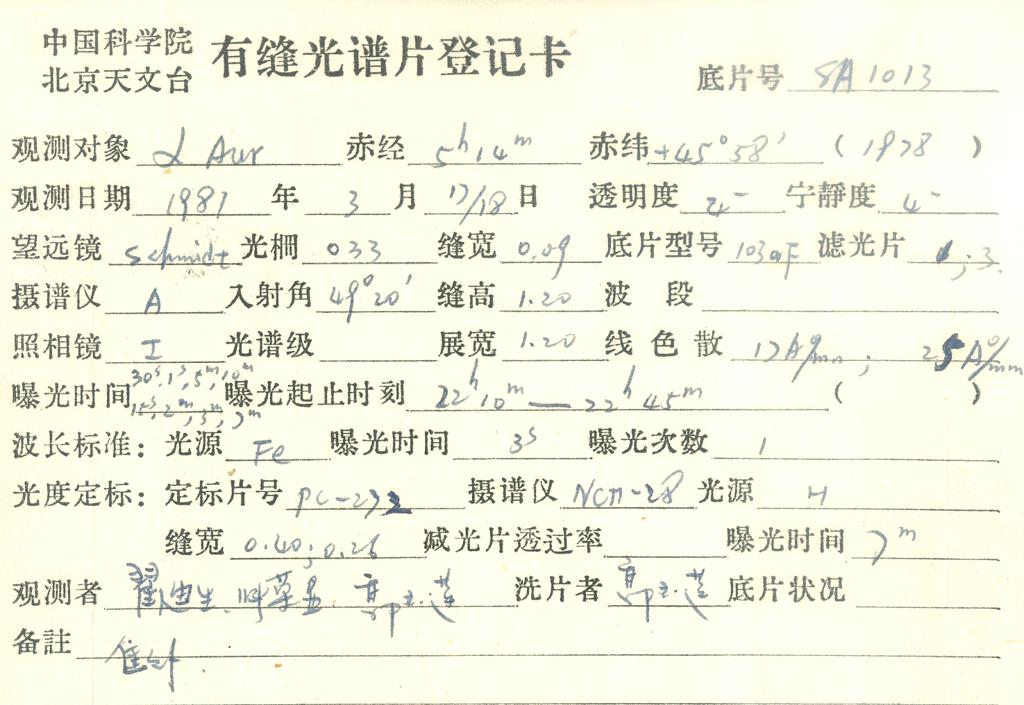 中国科学院
北京天文台
有缝光谱片登记卡
底片号 SA1013
观测对象 α Aur 赤经 5h14m 赤纬 +45°58′ (1978)
观测日期 1981 年 3 月 17/18 日 透明度 4- 宁静度 4-
望远镜 Schmidt 光栅 033 缝宽 0.09 底片型号 103aF 滤光片 ; 3
摄谱仪 A 入射角 49°20′ 缝高 1.20 波段
照相镜 I 光谱级 展宽 1.20 线色散 17Å/mm; 25Å/mm
曝光时间 30s, 1s, 5m, 10m 曝光起止时刻 22h10m — 22h45m ( )
15s, 2m, 3m, 7m
波长标准: 光源 Fe 曝光时间 3s 曝光次数 1
光度定标: 定标片号 PC-272 摄谱仪 光源 H
缝宽 0.40; 0.25 减光片透过率 曝光时间 7m
观测者 翟迪生 洗片者 底片状况
备註